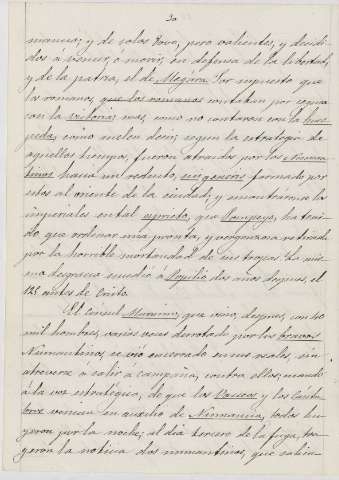 30
manos; y de solos 8000, pero valientes, y decidi-
dos á vencer, ó morir, en defensa de la libertad,
y de la patria, el de Megára. Por supuesto que
los romanos, que los romanos contaban por segura
con la victoria; mas, como no contaron con la
como suelen decir; segun la estrategia de
aquellos tiempos, fueron atraidos por los Numan-
tinos hacia un reducto, sui generis formado por
estos al oriente de la ciudad; y encontráronse los
imperiales en tal aprieto, que Pompeyo, ha teni-
do que ordenar una pronta, y vergonzosa retirada
por la horrible mortandad de sus tropas. La mis-
ma desgracia sucedió á Popilio dos años despues, el
antes de Cristo.
El Cónsul Mancino, que vino, despues, con 40
mil hombres, varias veces derrotado por los bravos
Numantinos, se vió encerrado en sus reales, sin
atreverse á salir á campaña, contra ellos; cuando
á la voz estratégica, de que los Vaceos y los Cánta-
bros venian en auxilio de Numancia, todos hu-
yeron por la noche; al dia tercero de la fuga, tra-
geron la noticia dos numantinos, que salie-